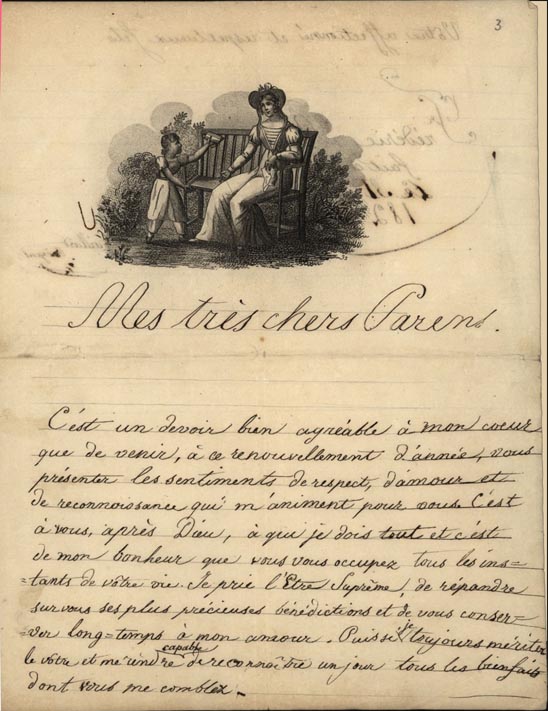 3
Mes très chers Parens.
C'est un devoir bien agréable à mon coeur
que de venir, à ce renouvellement d'année, vous
présenter les sentiments de respect, d'amour et
de reconnoissance qui m'animent pour vous. C'est
à vous, après Dieu, à qui je dois tout et c'est
de mon bonheur que vous vous occupez tous les ins=
=tants de vôtre vie. Je prie l'Etre Suprême, de répandre
sur vous ses plus précieuses bénédictions et de vous conser=
ver long=temps à mon amour. Puissé je toujours mériter
le vôtre et me rendre capable de reconnoître un jour tous les bienfaits
dont vous me comblez.